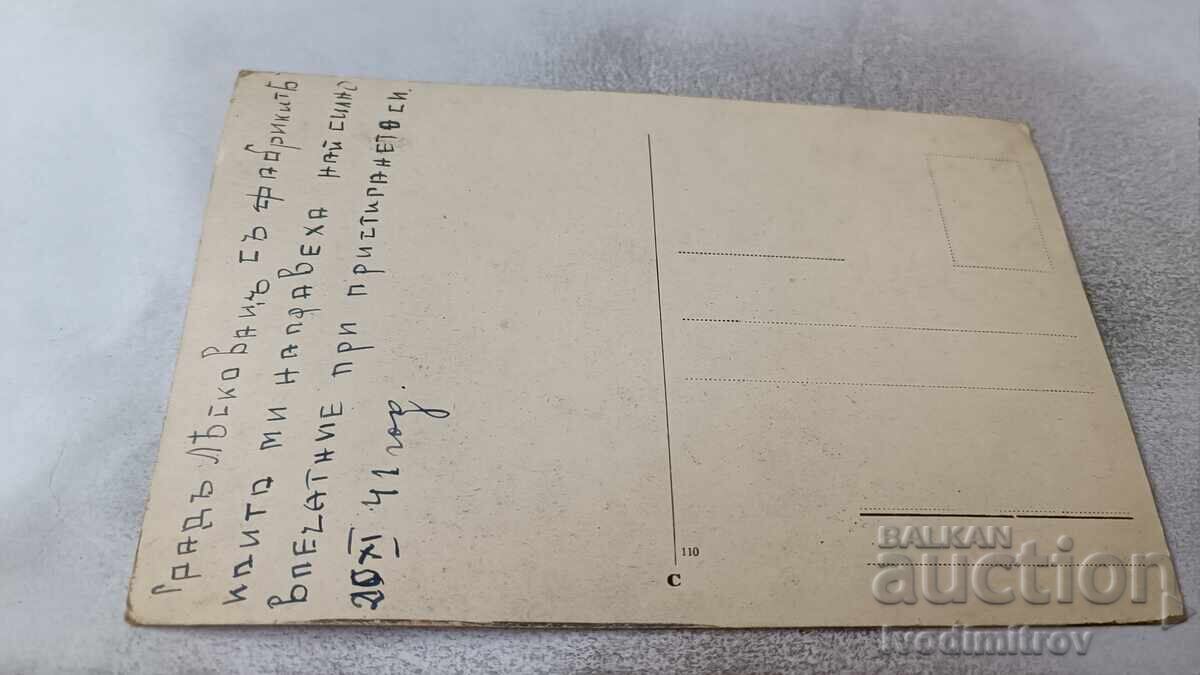 Градъ Лѣсковацъ съ фабрикитѣ
които ми направеха най силно
впечатние при пристиганетоси.
20 XI 41 год.
110
C
BALKAN
auction
ivodimitrov